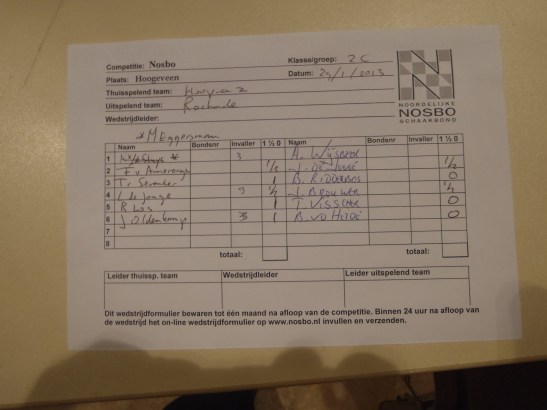 Competitie: Nosbo Klasse/groep: 2C
Plaats: Hoogeveen Datum: 29/1/2013
Thuisspelend team: Hoogeveen 2
Uitspelend team: Rochade
Wedstrijdleider:
NOORDELIJKE
NOSBO
SCHAAKBOND
* M Eggermann
Naam Bondsnr Invaller 1 ½ 0 Naam Bondsnr Invaller 1 ½ 0
1 * 3 A. Wijbeek
2 F v Amerongen ½ J. de ½
3 T. 1 B. RIDDERBOS 0
4 de Jonge 3 ½ J. BROUWER ½
5 R Los 1 T. VISSCHER 0
6 J Oldenkamp 3 1 B. vd HEIDE 0
7
8
totaal: totaal:
Leider thuissp. team Wedstrijdleider Leider uitspelend team
Dit wedstrijdformulier bewaren tot één maand na afloop van de competitie. Binnen 24 uur na afloop van
de wedstrijd het on-line wedstrijdformulier op www.nosbo.nl invullen en verzenden.